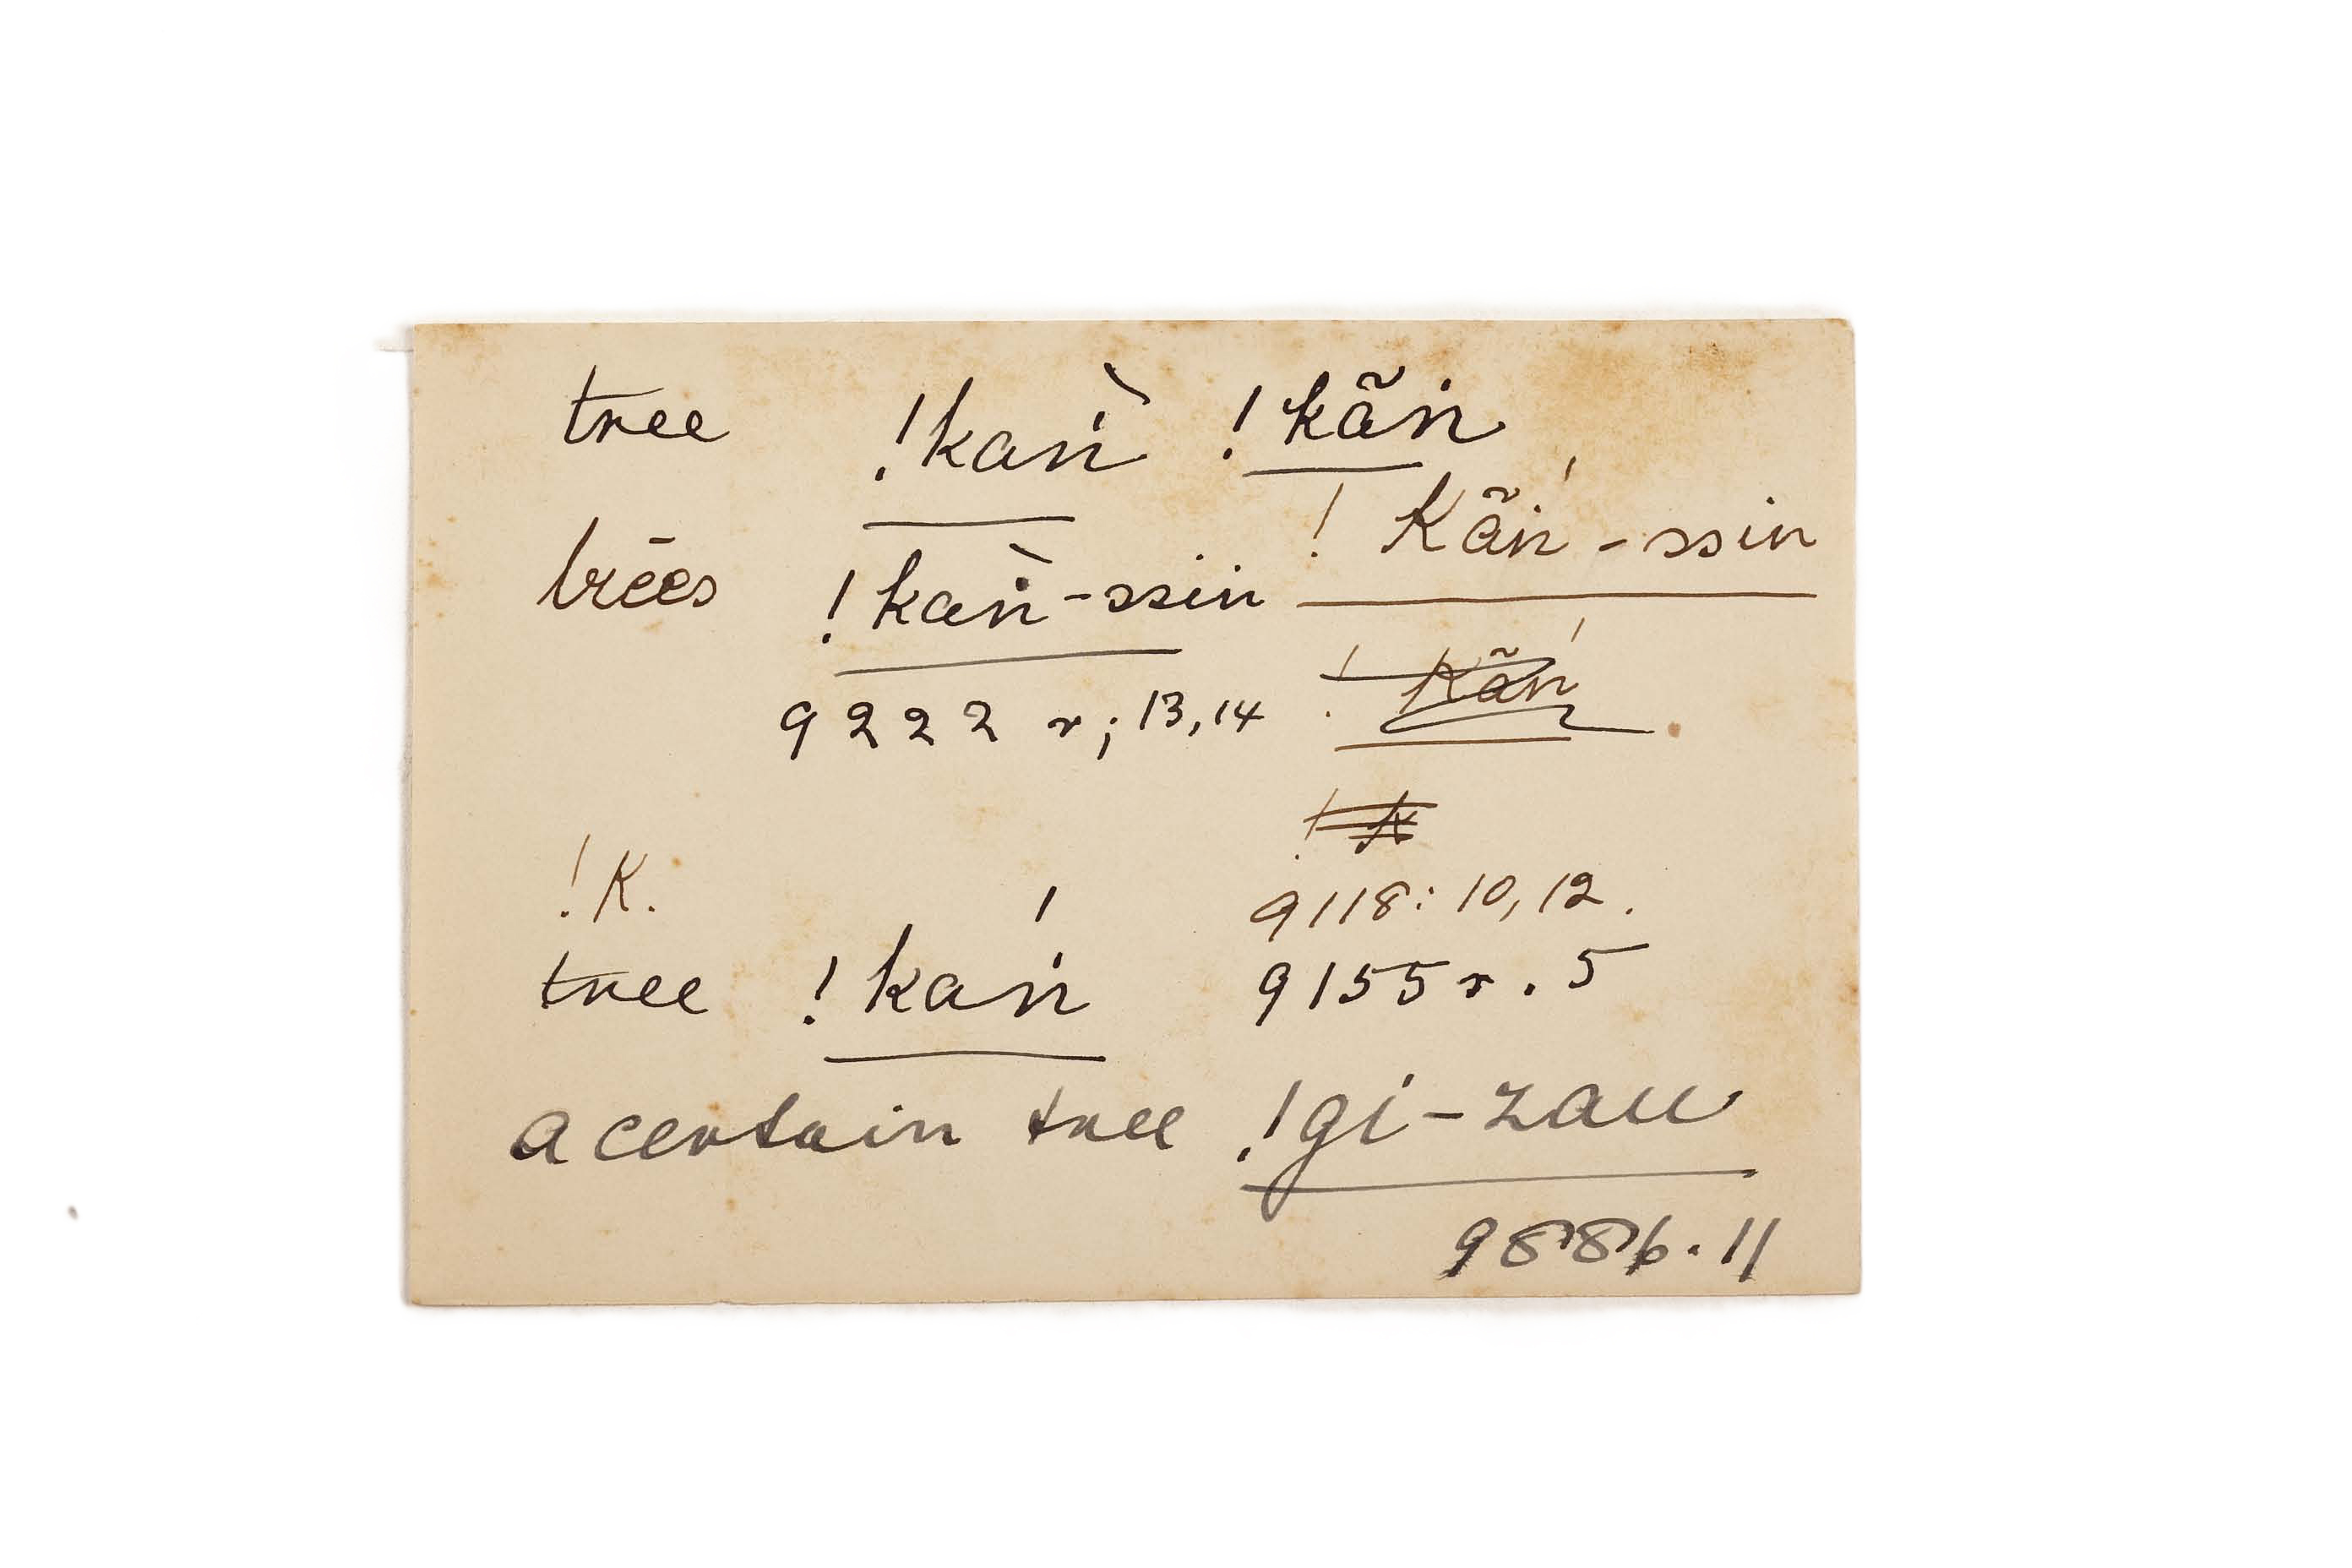 tree !kaṅ̀ !kãṅ
trēes !kaṅ̀-ssin !Kãṅ́-ssin
9222 r; 13, 14 !Kãṅ́
!K
!K. 9118: 10, 12.
tree !kaṅ́ 9155 r. 5
a certain tree !gi-zau